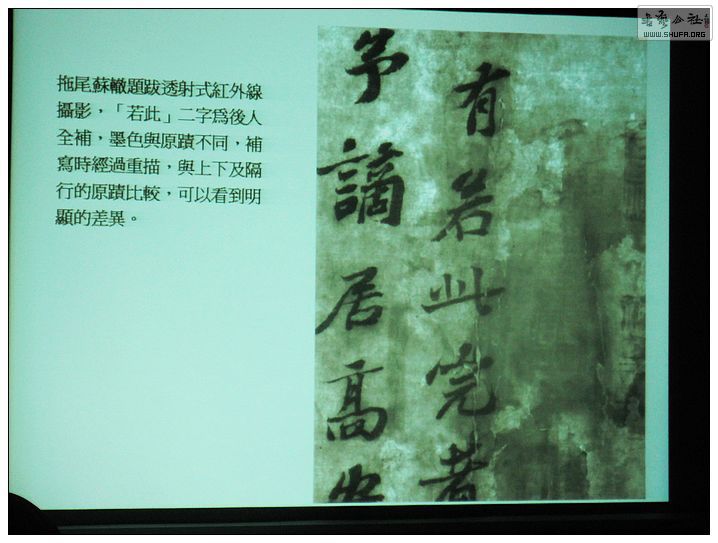 拖尾蘇轍題跋透射式紅外線
攝影，「若此」二字為後人
全補，墨色與原蹟不同，補
寫時經過重描，與上下及隔
行的原蹟比較，可以看到明
顯的差異。
有若此完者
予謫居高安
書法公社
WWW.SHUFA.ORG